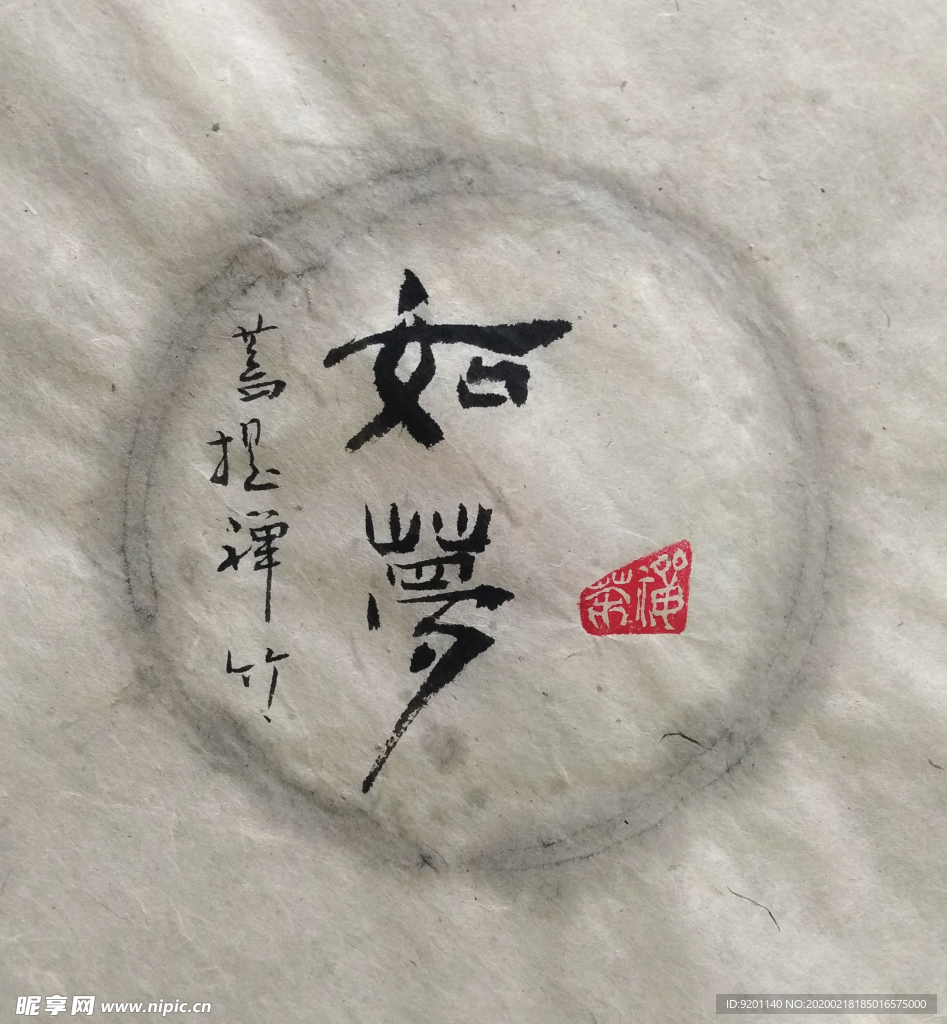 如夢
菩提禪竹
禪茶
昵享网 www.nipic.cn
ID:9201140 NO:20200218185016575000